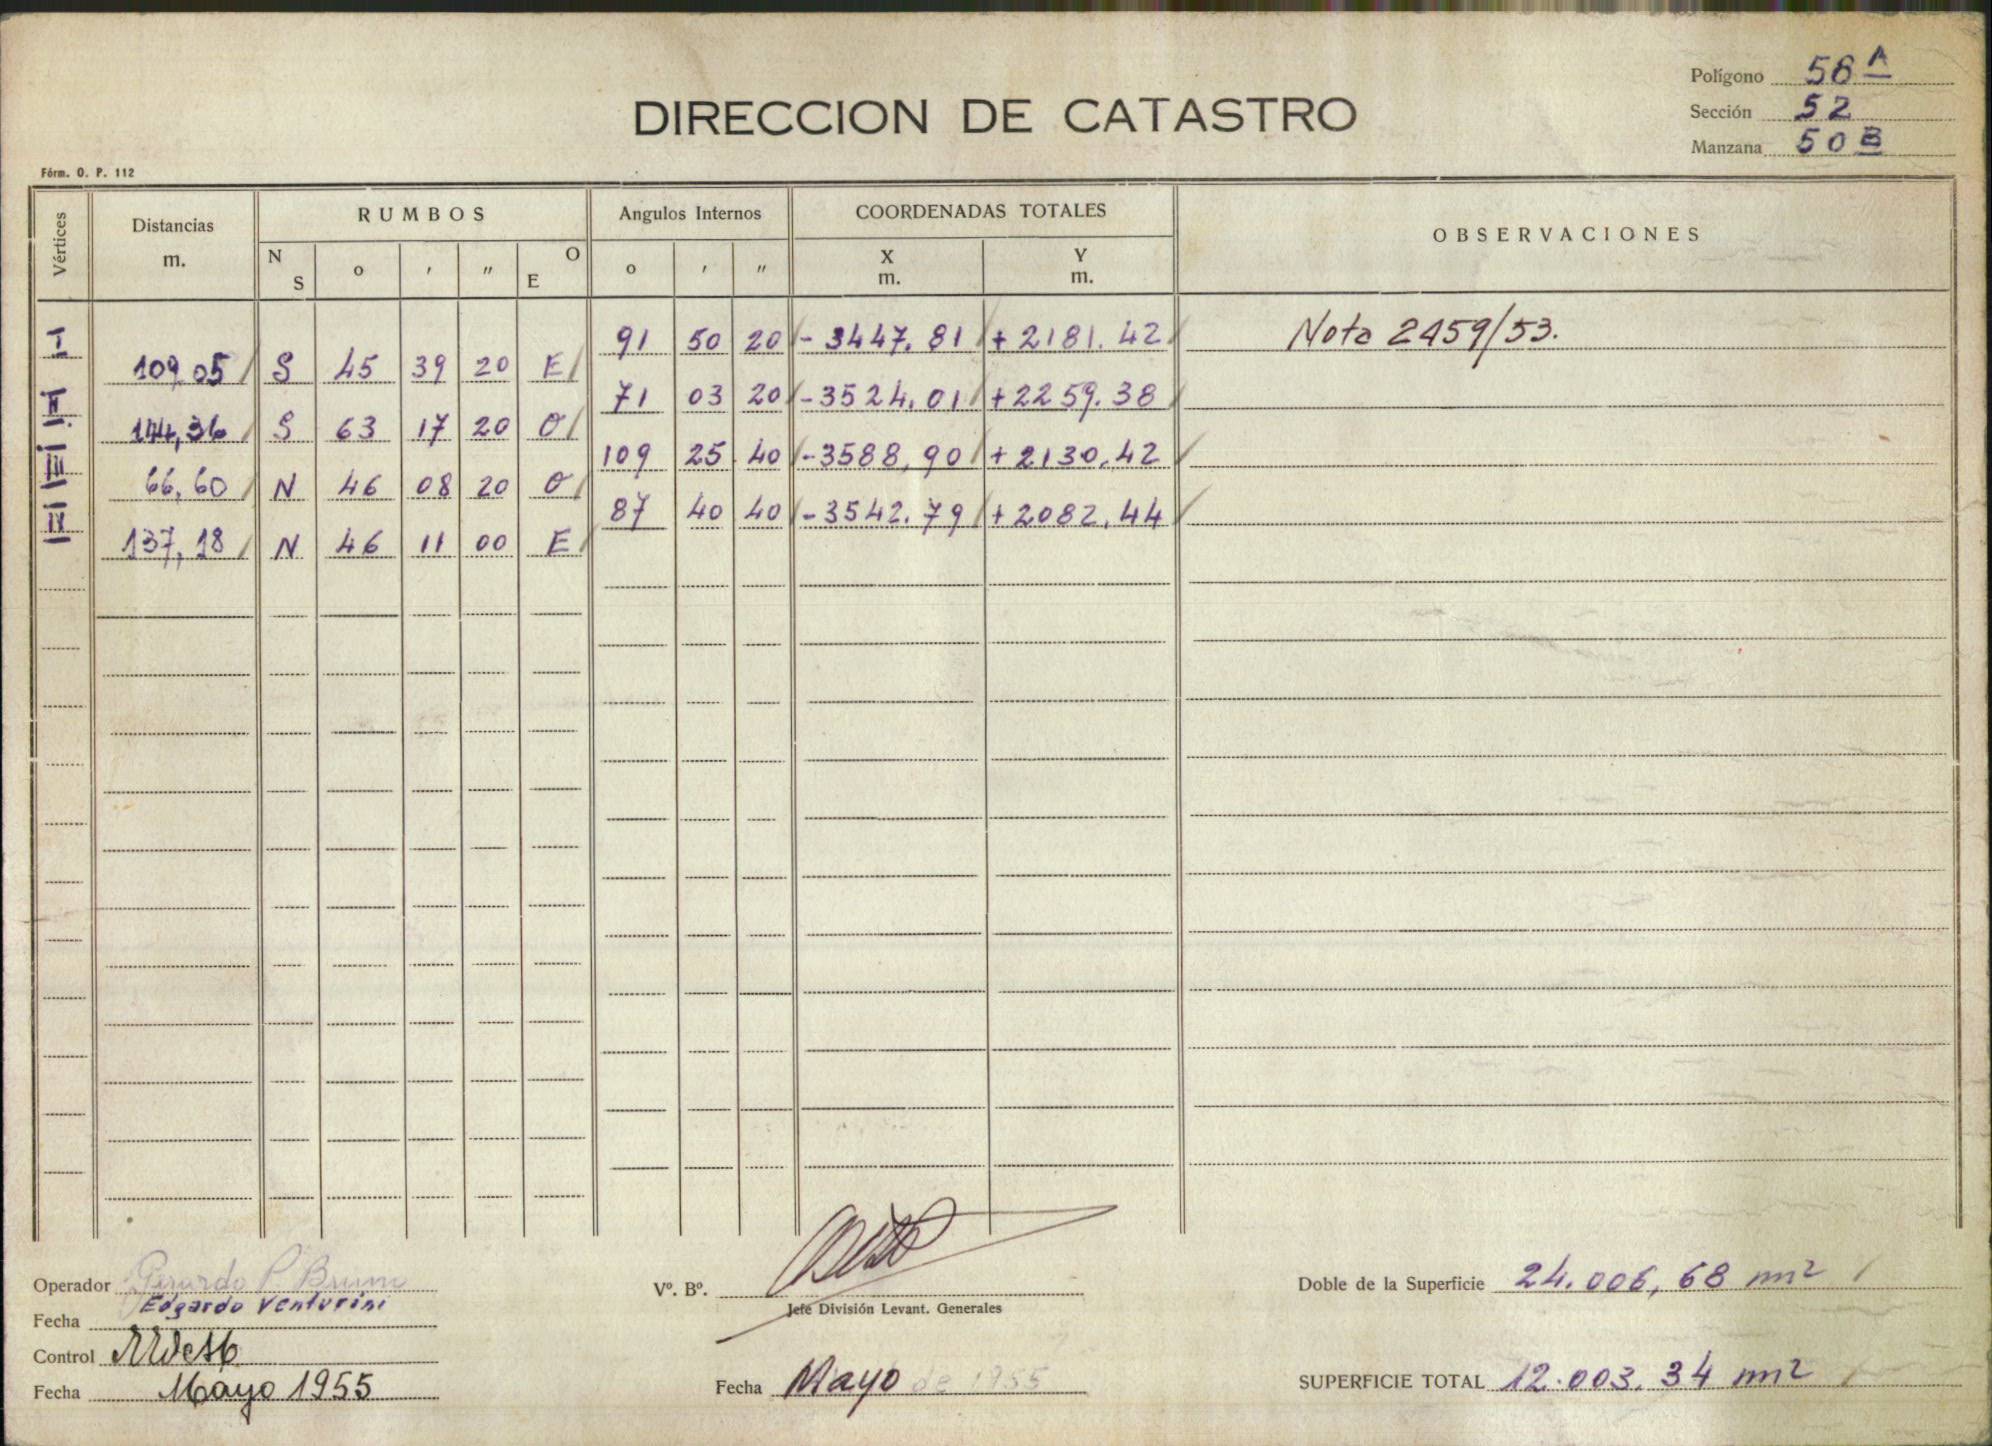 Polígono 56 A
DIRECCION DE CATASTRO
Sección 52
Manzana 50 B
Fórm. O. P. 112
Vértices Distancias m. RUMBOS Angulos Internos COORDENADAS TOTALES OBSERVACIONES
N S o ′ ″ O E o ′ ″ X m. Y m.
I 91 50 20 - 3447.81 + 2181.42 Nota 2459/53.
109,05 S 45 39 20 E
II 71 03 20 - 3524.01 + 2259.38
144,36 S 63 17 20 O
III 109 25 40 - 3588,90 + 2130.42
66,60 N 46 08 20 O
IV 87 40 40 - 3542.79 + 2082.44
137,18 N 46 11 00 E
Operador Gerardo P. Brum
Edgardo Venturini
Fecha
Control
Fecha Mayo 1955
Vº. Bº.
Jefe División Levant. Generales
Fecha Mayo de 1955
Doble de la Superficie 24.006,68 m²
SUPERFICIE TOTAL 12.003.34 m²